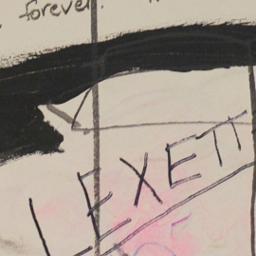 forever.
LEXETT